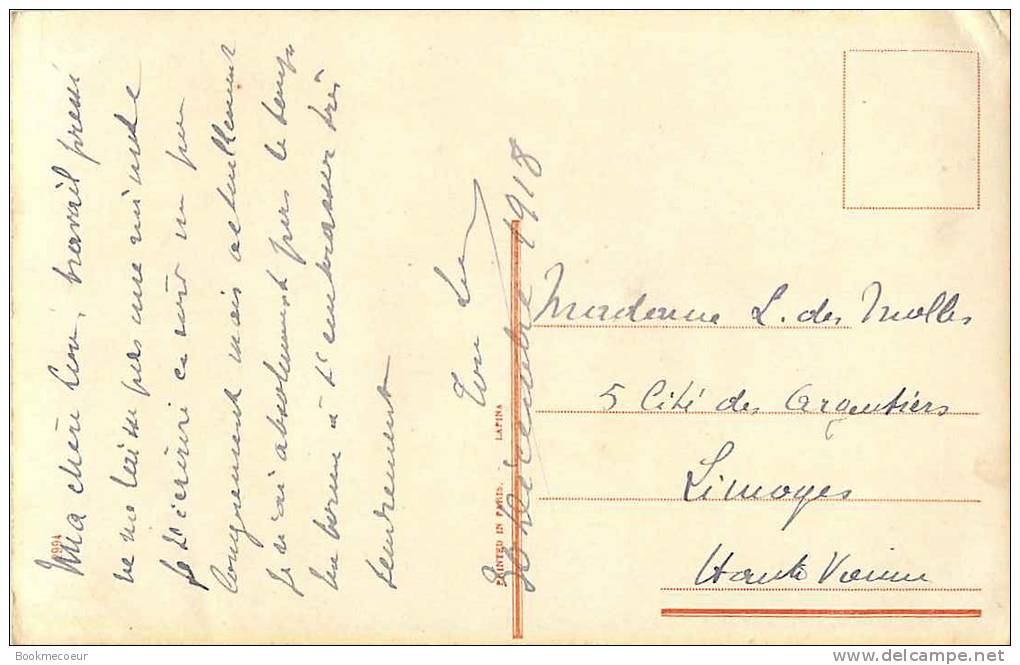 Ma chère Lucie, travail pressé
ne me laisse pas une minute
je t'écrirai ce soir un peu
longuement mais actuellement
je n'ai absolument pas le temps
me borne à t'embrasser très
tendrement
Ton
30 Décembre 1918
Madame L. des Molles
5 Cité des Argentiers
Limoges
Haute Vienne
PRINTED IN PARIS. LAPINA
994
Bookmecoeur
www.delcampe.net